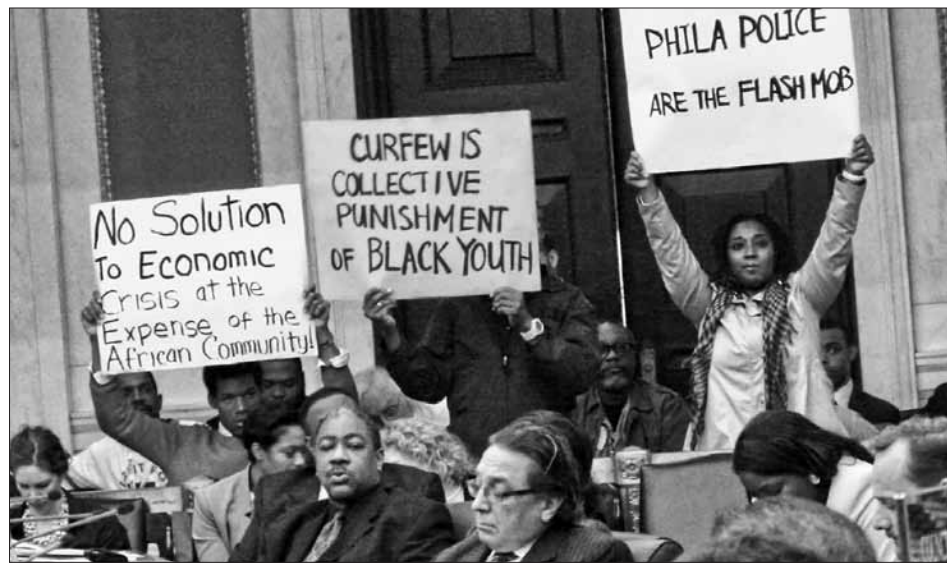 No Solution
To Economic
Crisis at the
Expense of the
African Community!
CURFEW IS
COLLECTIVE
PUNISHMENT
OF BLACK YOUTH
PHILA POLICE
ARE THE FLASH MOB